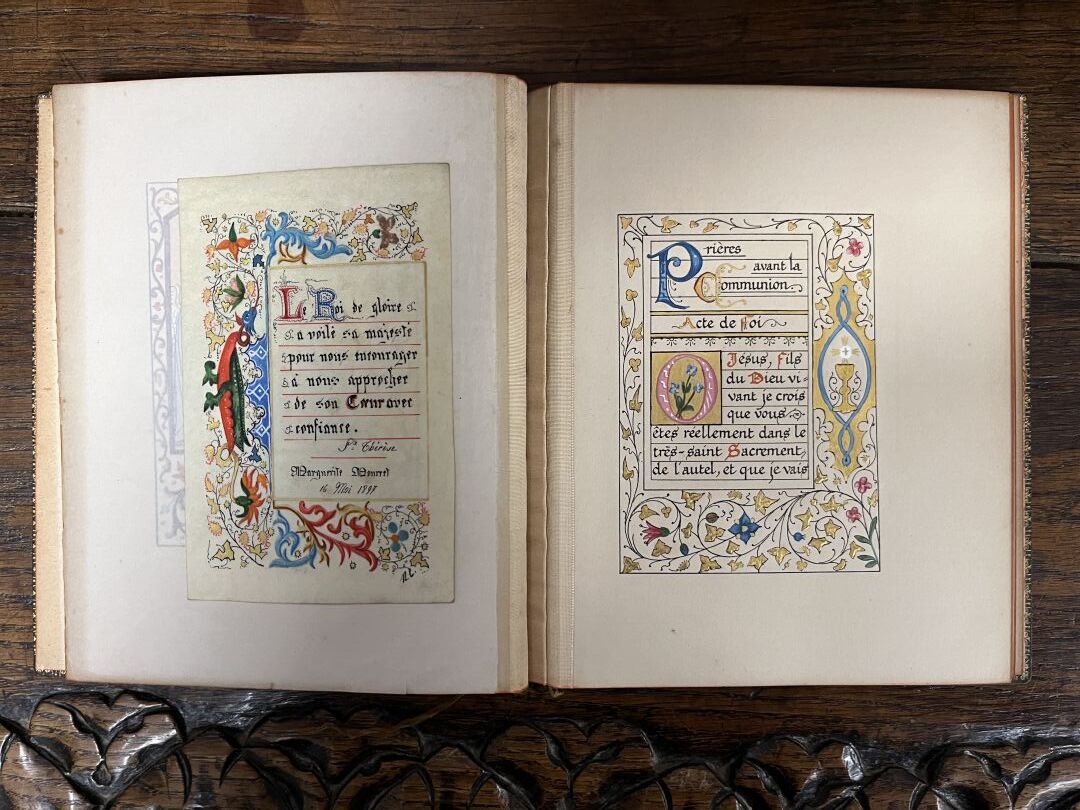 Le Roi de gloire
a voilé sa majesté
pour nous encourager
à nous approcher
de son Cœur avec
confiance.
Ste Thérèse
Marguerite
16 Mai 1897
Prières
avant la
Communion.
Acte de Foi
O Jésus, Fils
du Dieu vi-
vant je crois
que vous
êtes réellement dans le
très-saint Sacrement
de l'autel, et que je vais